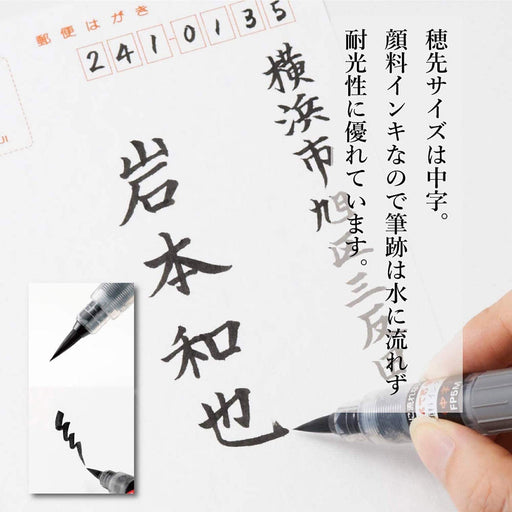 郵便はがき
2410135
穂先サイズは中字。
顔料インキなので筆跡は水に流れず
耐光性に優れています。
横浜市旭区三反田
九
岩本和也
中字
FP5M